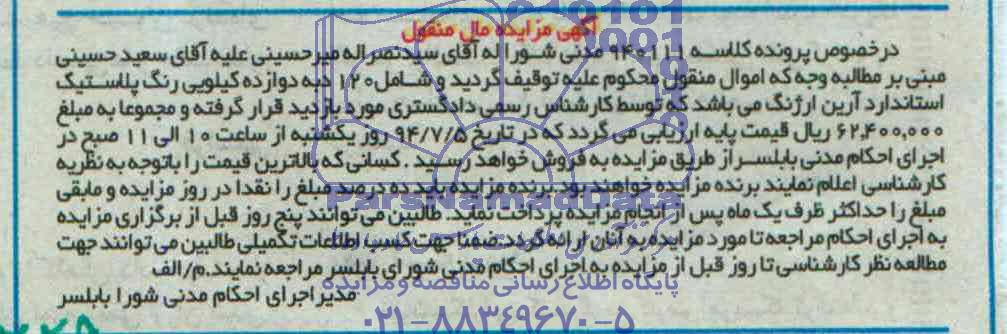 آگهی مزایده مال منقول
درخصوص پرونده کلاسه ۱-۹۴۰۱۱ مدنی شورا له آقای سیدنصراله میرحسینی علیه آقای سعید حسینی
مبنی بر مطالبه وجه که اموال منقول محکوم علیه توقیف گردید و شامل ۱۲۰ دبه دوازده کیلویی رنگ پلاستیک
استاندارد آرین ارژنگ می باشد که توسط کارشناس رسمی دادگستری مورد بازدید قرار گرفته و مجموعا به مبلغ
۶۲,۴۰۰,۰۰۰ ریال قیمت پایه ارزیابی می گردد که در تاریخ ۹۴/۷/۵ روز یکشنبه از ساعت ۱۰ الی ۱۱ صبح در
اجرای احکام مدنی بابلسر از طریق مزایده به فروش خواهد رسید . کسانی که بالاترین قیمت را باتوجه به نظریه
کارشناسی اعلام نمایند برنده مزایده خواهند بود.برنده مزایده باید ده درصد مبلغ را نقدا در روز مزایده و مابقی
مبلغ را حداکثر ظرف یک ماه پس از انجام مزایده پرداخت نماید. طالبین می توانند پنج روز قبل از برگزاری مزایده
به اجرای احکام مراجعه تا مورد مزایده به آنان ارائه گردد.ضمنا جهت کسب اطلاعات تکمیلی طالبین می توانند جهت
مطالعه نظر کارشناسی تا روز قبل از مزایده به اجرای احکام مدنی شورای بابلسر مراجعه نمایند.م/الف
مدیر اجرای احکام مدنی شورا بابلسر
ParsNamadData
پایگاه اطلاع رسانی مناقصه و مزایده
۰۲۱-۸۸۳۴۹۶۷۰-۵